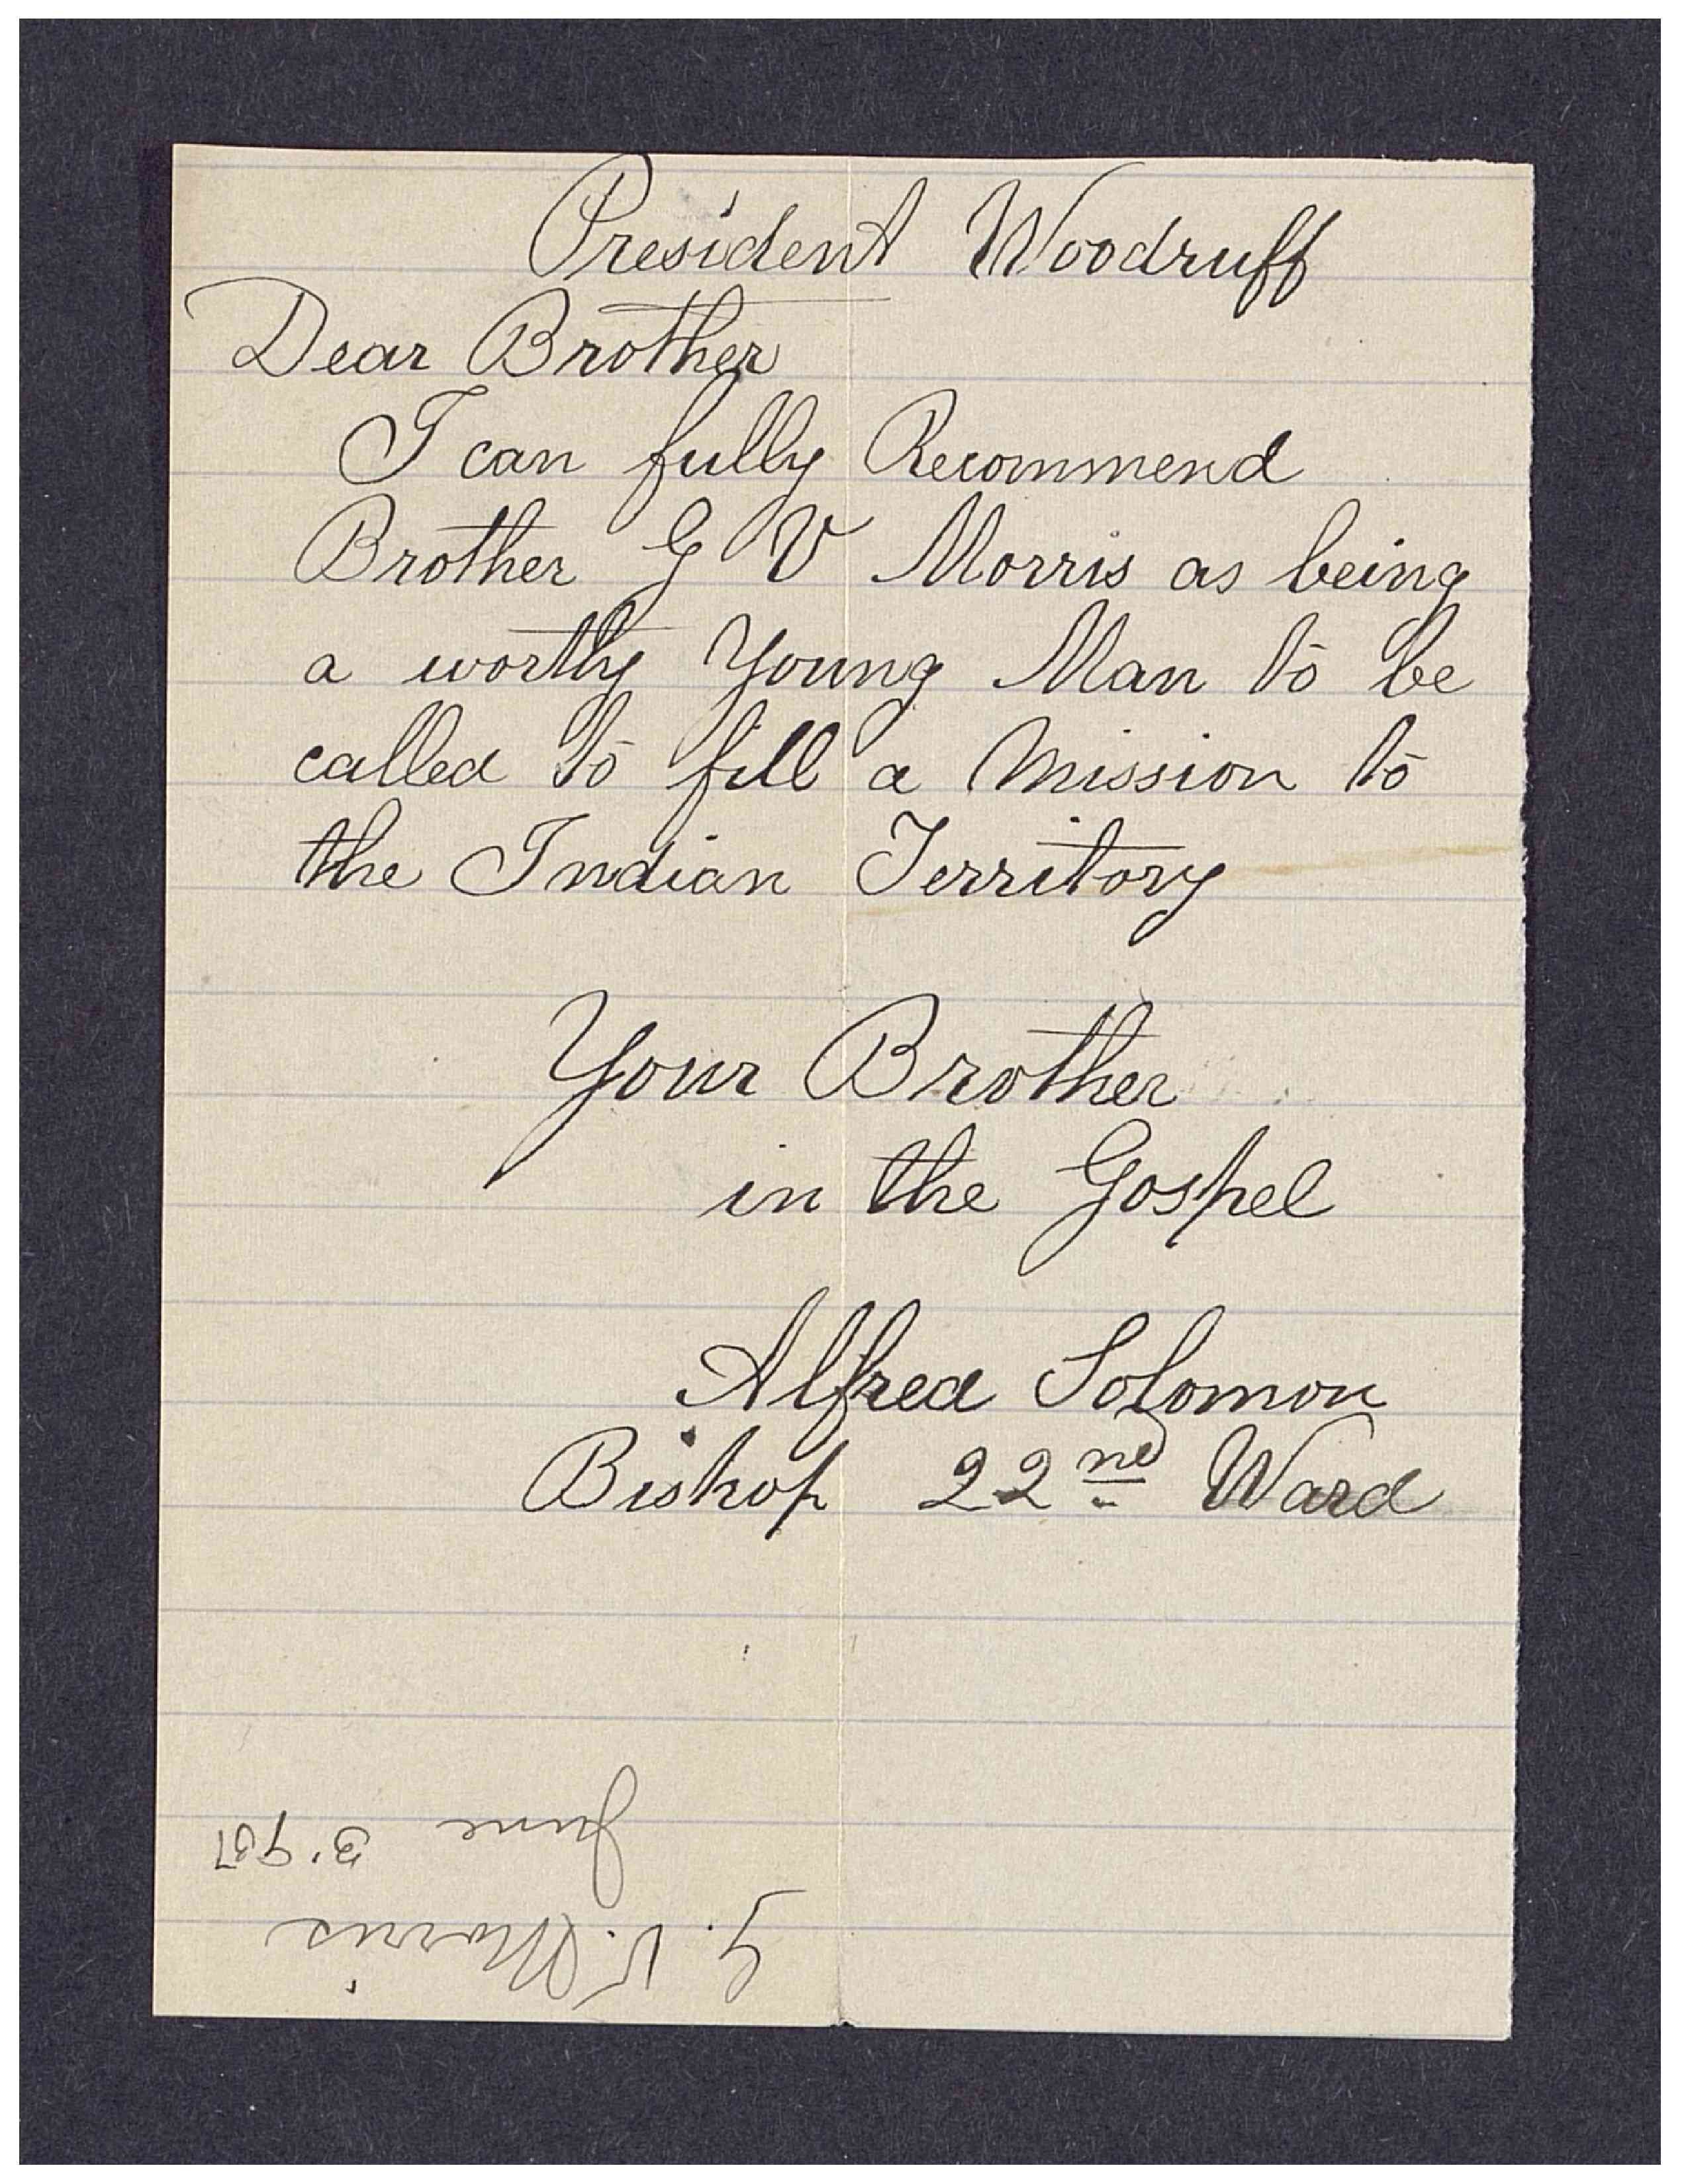 President Woodruff
Dear Brother
I can fully Recommend
Brother G V Morris as being
a worthy Young Man to be
called to fill a Mission to
the Indian Territory
Your Brother
in the Gospel
Alfred Solomon
Bishop 22nd Ward
G. V. Morris
June